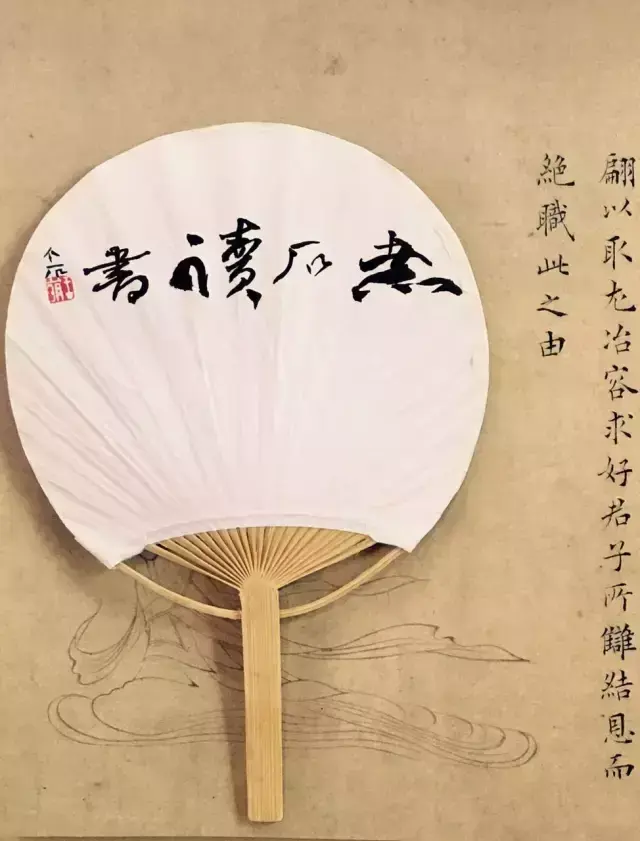 煮石讀書
翩以取尤冶容求好君子所讎結恩而
絶職此之由